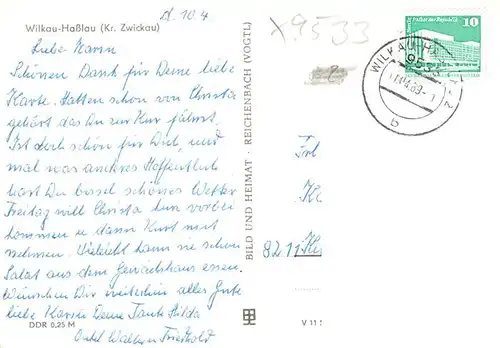 d. 10.4
x 9533
Wilkau-Haßlau (Kr. Zwickau)
Liebe Karin
Schönen Dank für Deine liebe
Karte. Hatten schon von Christa
gehört das Du zur Kur fährst.
Ist doch schön für Dich, und
mal was anderes Hoffentlich
hast Du bissel schönes Wetter
Freitag will Christa vorbei
kommen u dann Kurt mit
nehmen. Vieleicht kann sie schon
Salat aus dem Gewächshaus essen.
Wünschen Dir weiterhin alles Gute
liebe Karin Deine Tante Hilda
Onkel Walter
DDR 0,25 M
BILD UND HEIMAT · REICHENBACH (VOGTL)
10
WILKAU-HASSLAU 2
9533
b
8211
V 11